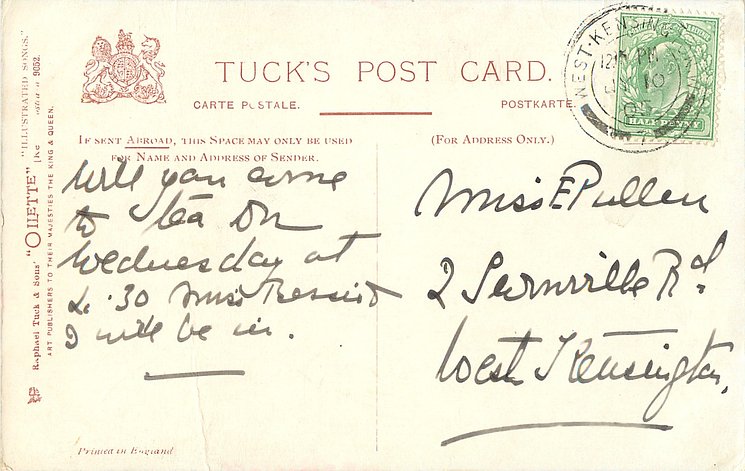 WEST·KENSINGTON
12 15 PM
10
05
HALFPENNY
TUCK'S POST CARD.
CARTE POSTALE.
POSTKARTE.
IF SENT ABROAD, THIS SPACE MAY ONLY BE USED
FOR NAME AND ADDRESS OF SENDER.
(FOR ADDRESS ONLY.)
Will you come
to tea on
Wednesday at
4.30 Miss
I will be in.
Miss E Pullen
2 Rd.
West Kensington.
Raphael Tuck & Sons' "OILETTE" "ILLUSTRATED SONGS." 9052.
ART PUBLISHERS TO THEIR MAJESTIES THE KING & QUEEN.
Printed in England